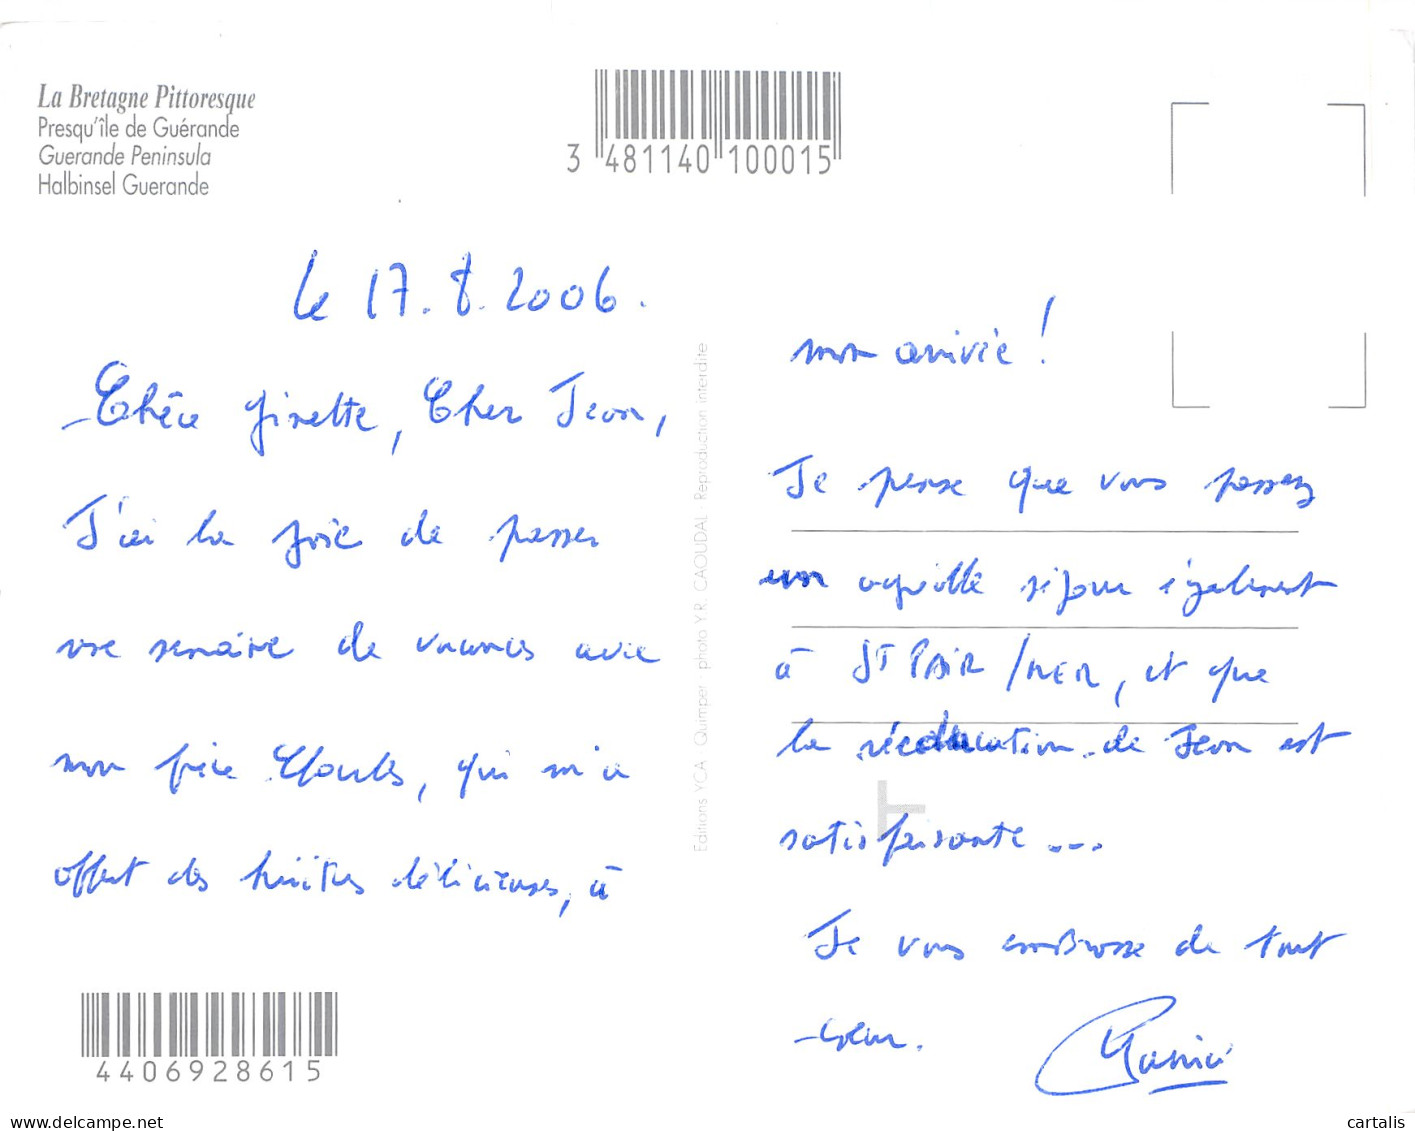 La Bretagne Pittoresque
Presqu'île de Guérande
Guerande Peninsula
Halbinsel Guerande
3 481140 100015
le 17.8.2006.
Chère Ginette, Cher Jean,
J'ai la joie de passer
une semaine de vacances avec
mon frère Charles, qui m'a
offert des huîtres délicieuses, à
4406928615
Editions YCA Quimper - photo Y.R. CAOUDAL - Reproduction interdite
mon arrivée !
Je pense que vous passez
un agréable séjour également
à ST PAIR / MER, et que
la rééducation de Jean est
satisfaisante ...
Je vous embrasse de tout
coeur.
www.delcampe.net
cartalis